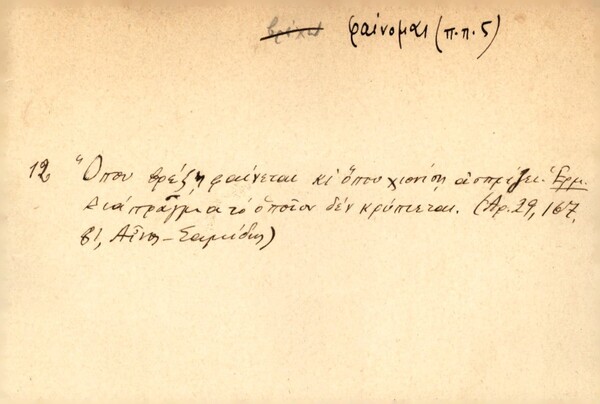 βρέχω φαίνομαι (π.π. 5)
12 Ὅπου βρέξῃ φαίνεται κι ὅπου χιονίσῃ ἀσπρίζει. Ἑρμ.
Διὰ πρᾶγμα τὸ ὁποῖον δὲν κρύπτεται. (Ἀρ. 29, 167,
81, Αἶνος - Σαμίδης)